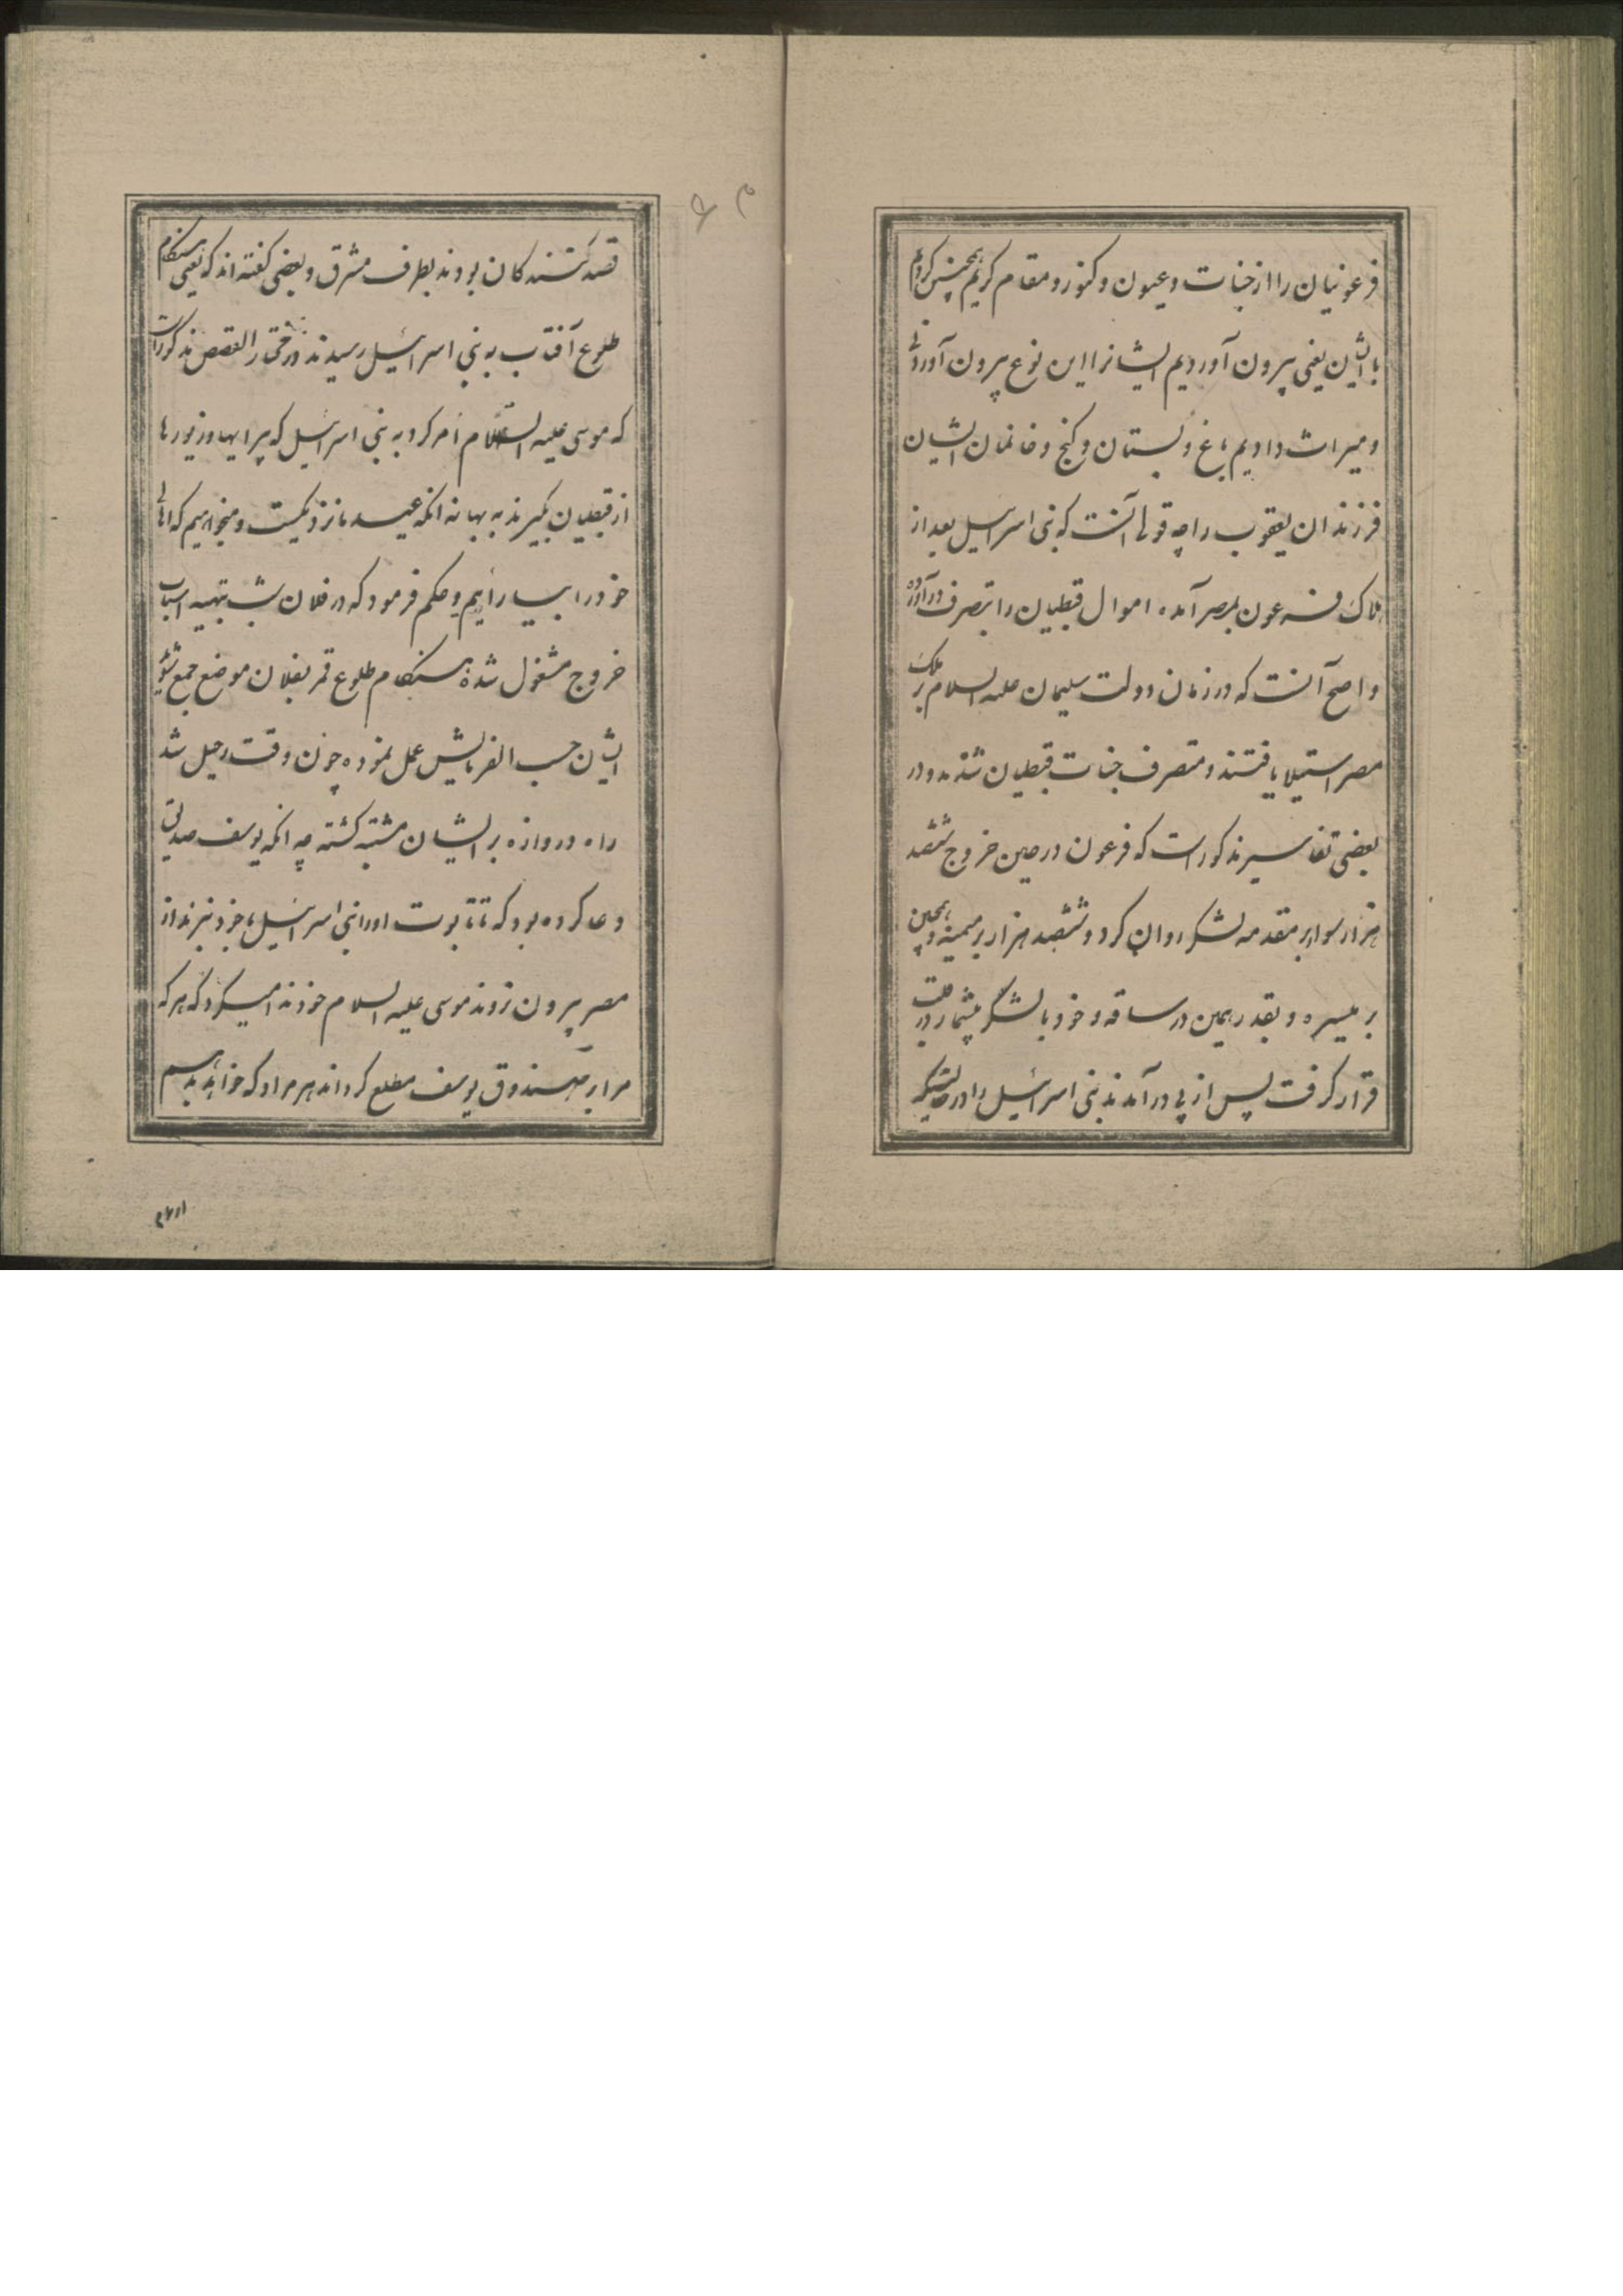 فرعونیان را از جنات و عیون و کنوز و مقام کریم همچنین کردیم
با ایشان یعنی بیرون آوردیم ایشانرا این نوع بیرون آوردنی
و میراث دادیم باغ و بستان و کنج و خانمان ایشان
فرزندان یعقوب را چه قولی آنست که بنی اسرایل بعد از
هلاک فرعون بمصر آمده اموال قبطیان را بتصرف در آوردند
و اصح آنست که در زمان دولت سلیمان علیه السلام بر ملک
مصر استیلا یافتند و متصرف جنات قبطیان شدند و در
بعضی تفاسیر مذکور است که فرعون در حین خروج ششصد
هزار سوار بر مقدمه لشکر روان کرد و ششصد هزار بر میمنه و همچنین
بر میسره و بقدر همین در ساقه و خود با لشکر بیشمار در قلب
قرار کرفت پس از پی در آمدند بنی اسرائیل را در حالتیکه
قصد کنندکان بودند بطرف مشرق و بعضی کفته اند که یعنی هنکام
طلوع آفتاب به بنی اسرائیل رسیدند در مختار القصص مذکور است
که موسی علیه السلام امر کرد به بنی اسرائیل که پیرایها و زیورها
از قبطیان بگیرند به بهانه انکه عید ما نزدیکست و میخواهیم که اهالی
خود را بیارائیم و حکم فرمود که در فلان شب بتهیه اسباب
خروج مشغول شده هنکام طلوع قمر بفلان موضع جمع شوید
ایشان حسب الفرمایش عمل نموده چون وقت رحیل شد
راه دروازه بر ایشان مشتبه کشته چه انکه یوسف صدیق
دعا کرده بود که تا تابوت او را بنی اسرائیل با خود نبرند از
مصر بیرون نروند موسی علیه السلام خود ندا میکرد که هر که
مرا بر صندوق یوسف مطلع کرداند هر مراد که خواهد بدهم